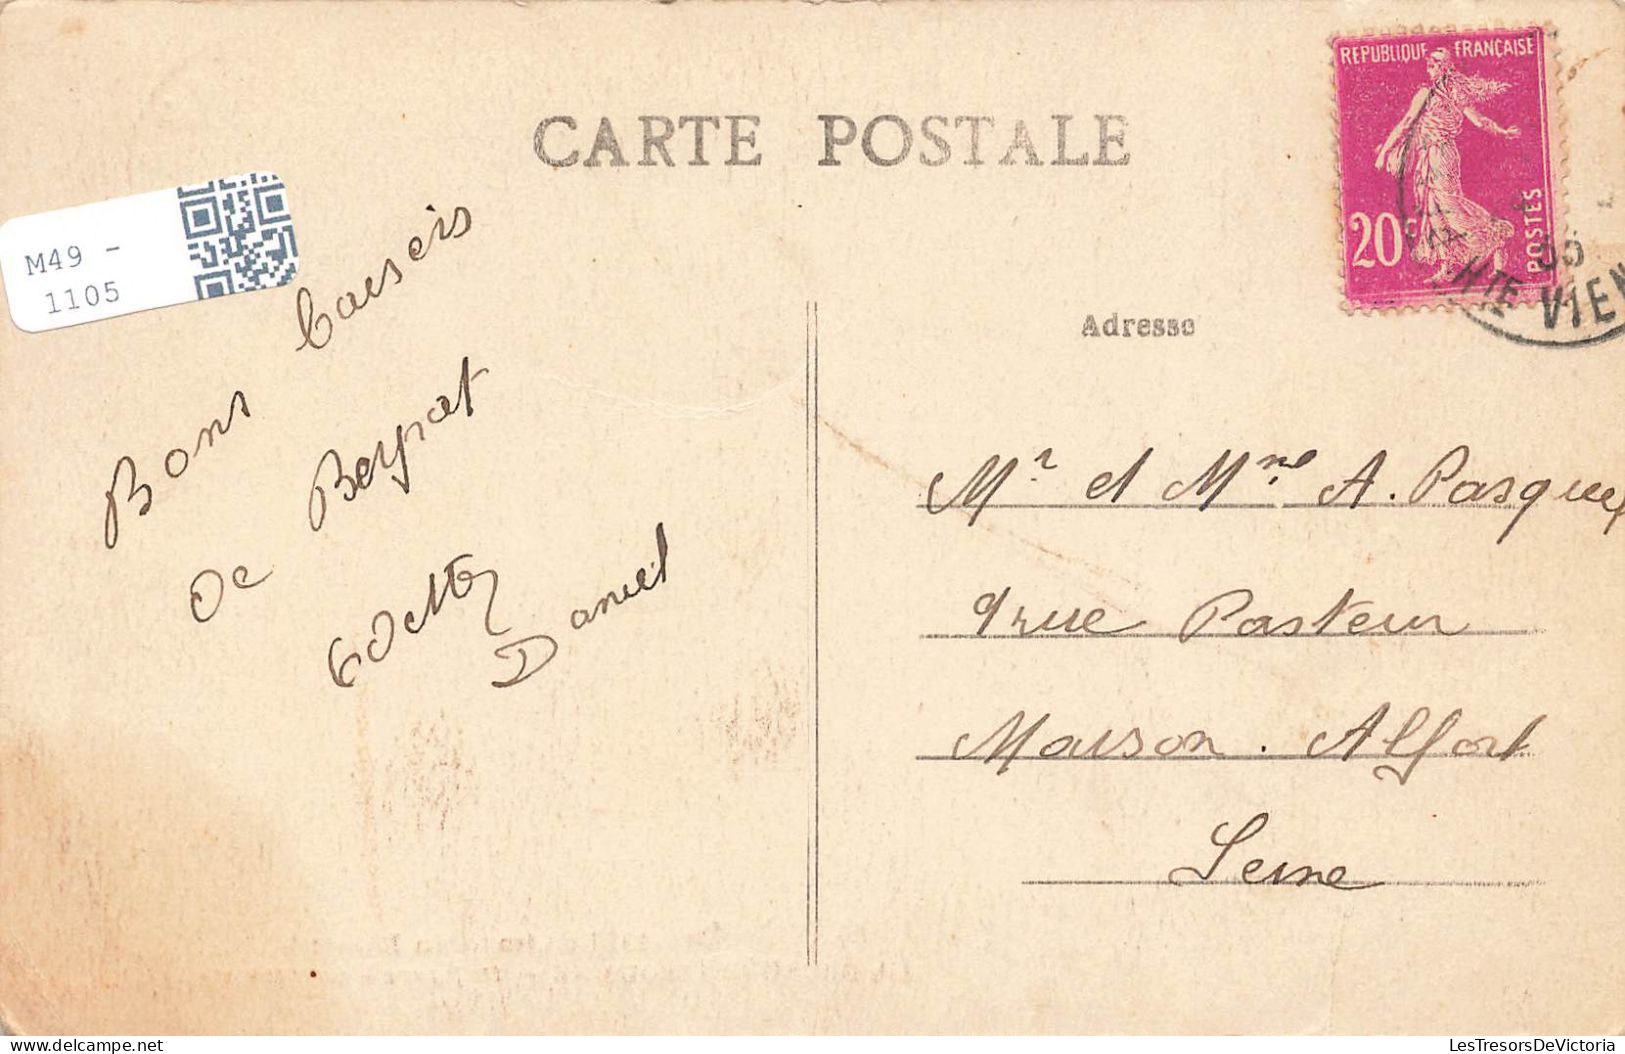 CARTE POSTALE
REPUBLIQUE FRANÇAISE
20c
POSTES
35
HTE VIEN
M49 -
1105
Bons baisers
de Beynat
Odette
Daniel
Adresse
Mr et Mme A. Pasquet
9 rue Pasteur
Maison. Alfort
Seine
delcampe.net
LesTresorsDeVictoria